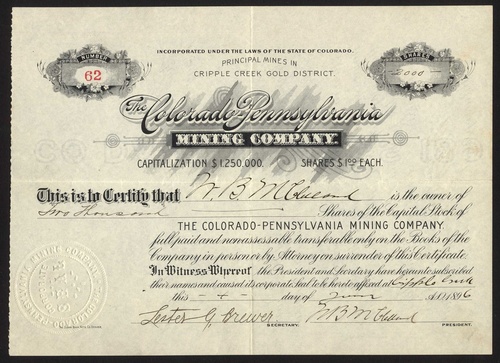 INCORPORATED UNDER THE LAWS OF THE STATE OF COLORADO.
NUMBER
62
PRINCIPAL MINES IN
CRIPPLE CREEK GOLD DISTRICT.
SHARES
2000
The Colorado-Pennsylvania
MINING COMPANY.
CAPITALIZATION $1,250,000. SHARES $1.00 EACH.
This is to Certify that W. B. McClelland is the owner of
Two Thousand Shares of the Capital Stock of
THE COLORADO-PENNSYLVANIA MINING COMPANY
full paid and nonassessable transferable only on the Books of the
Company in person or by Attorney on surrender of this Certificate.
In Witness Whereof the President and Secretary have hereunto subscribed
their names and caused its corporate Seal to be hereto affixed at Cripple Creek
this day of A.D. 1896
Lester G. Brewer W B McClelland
SECRETARY. PRESIDENT.